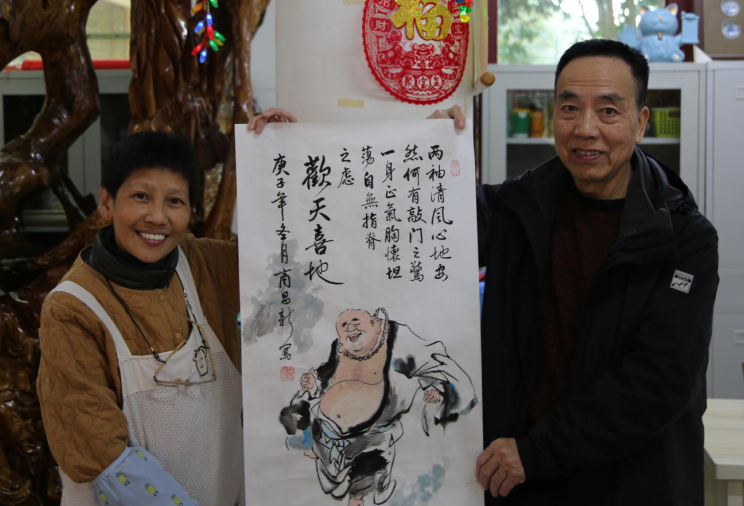 福
财
两袖清风心地安
然何有敲门之驚
一身正氣胸懷坦
蕩自無指脊
之虑
歡天喜地
庚子年冬月 昌新寫